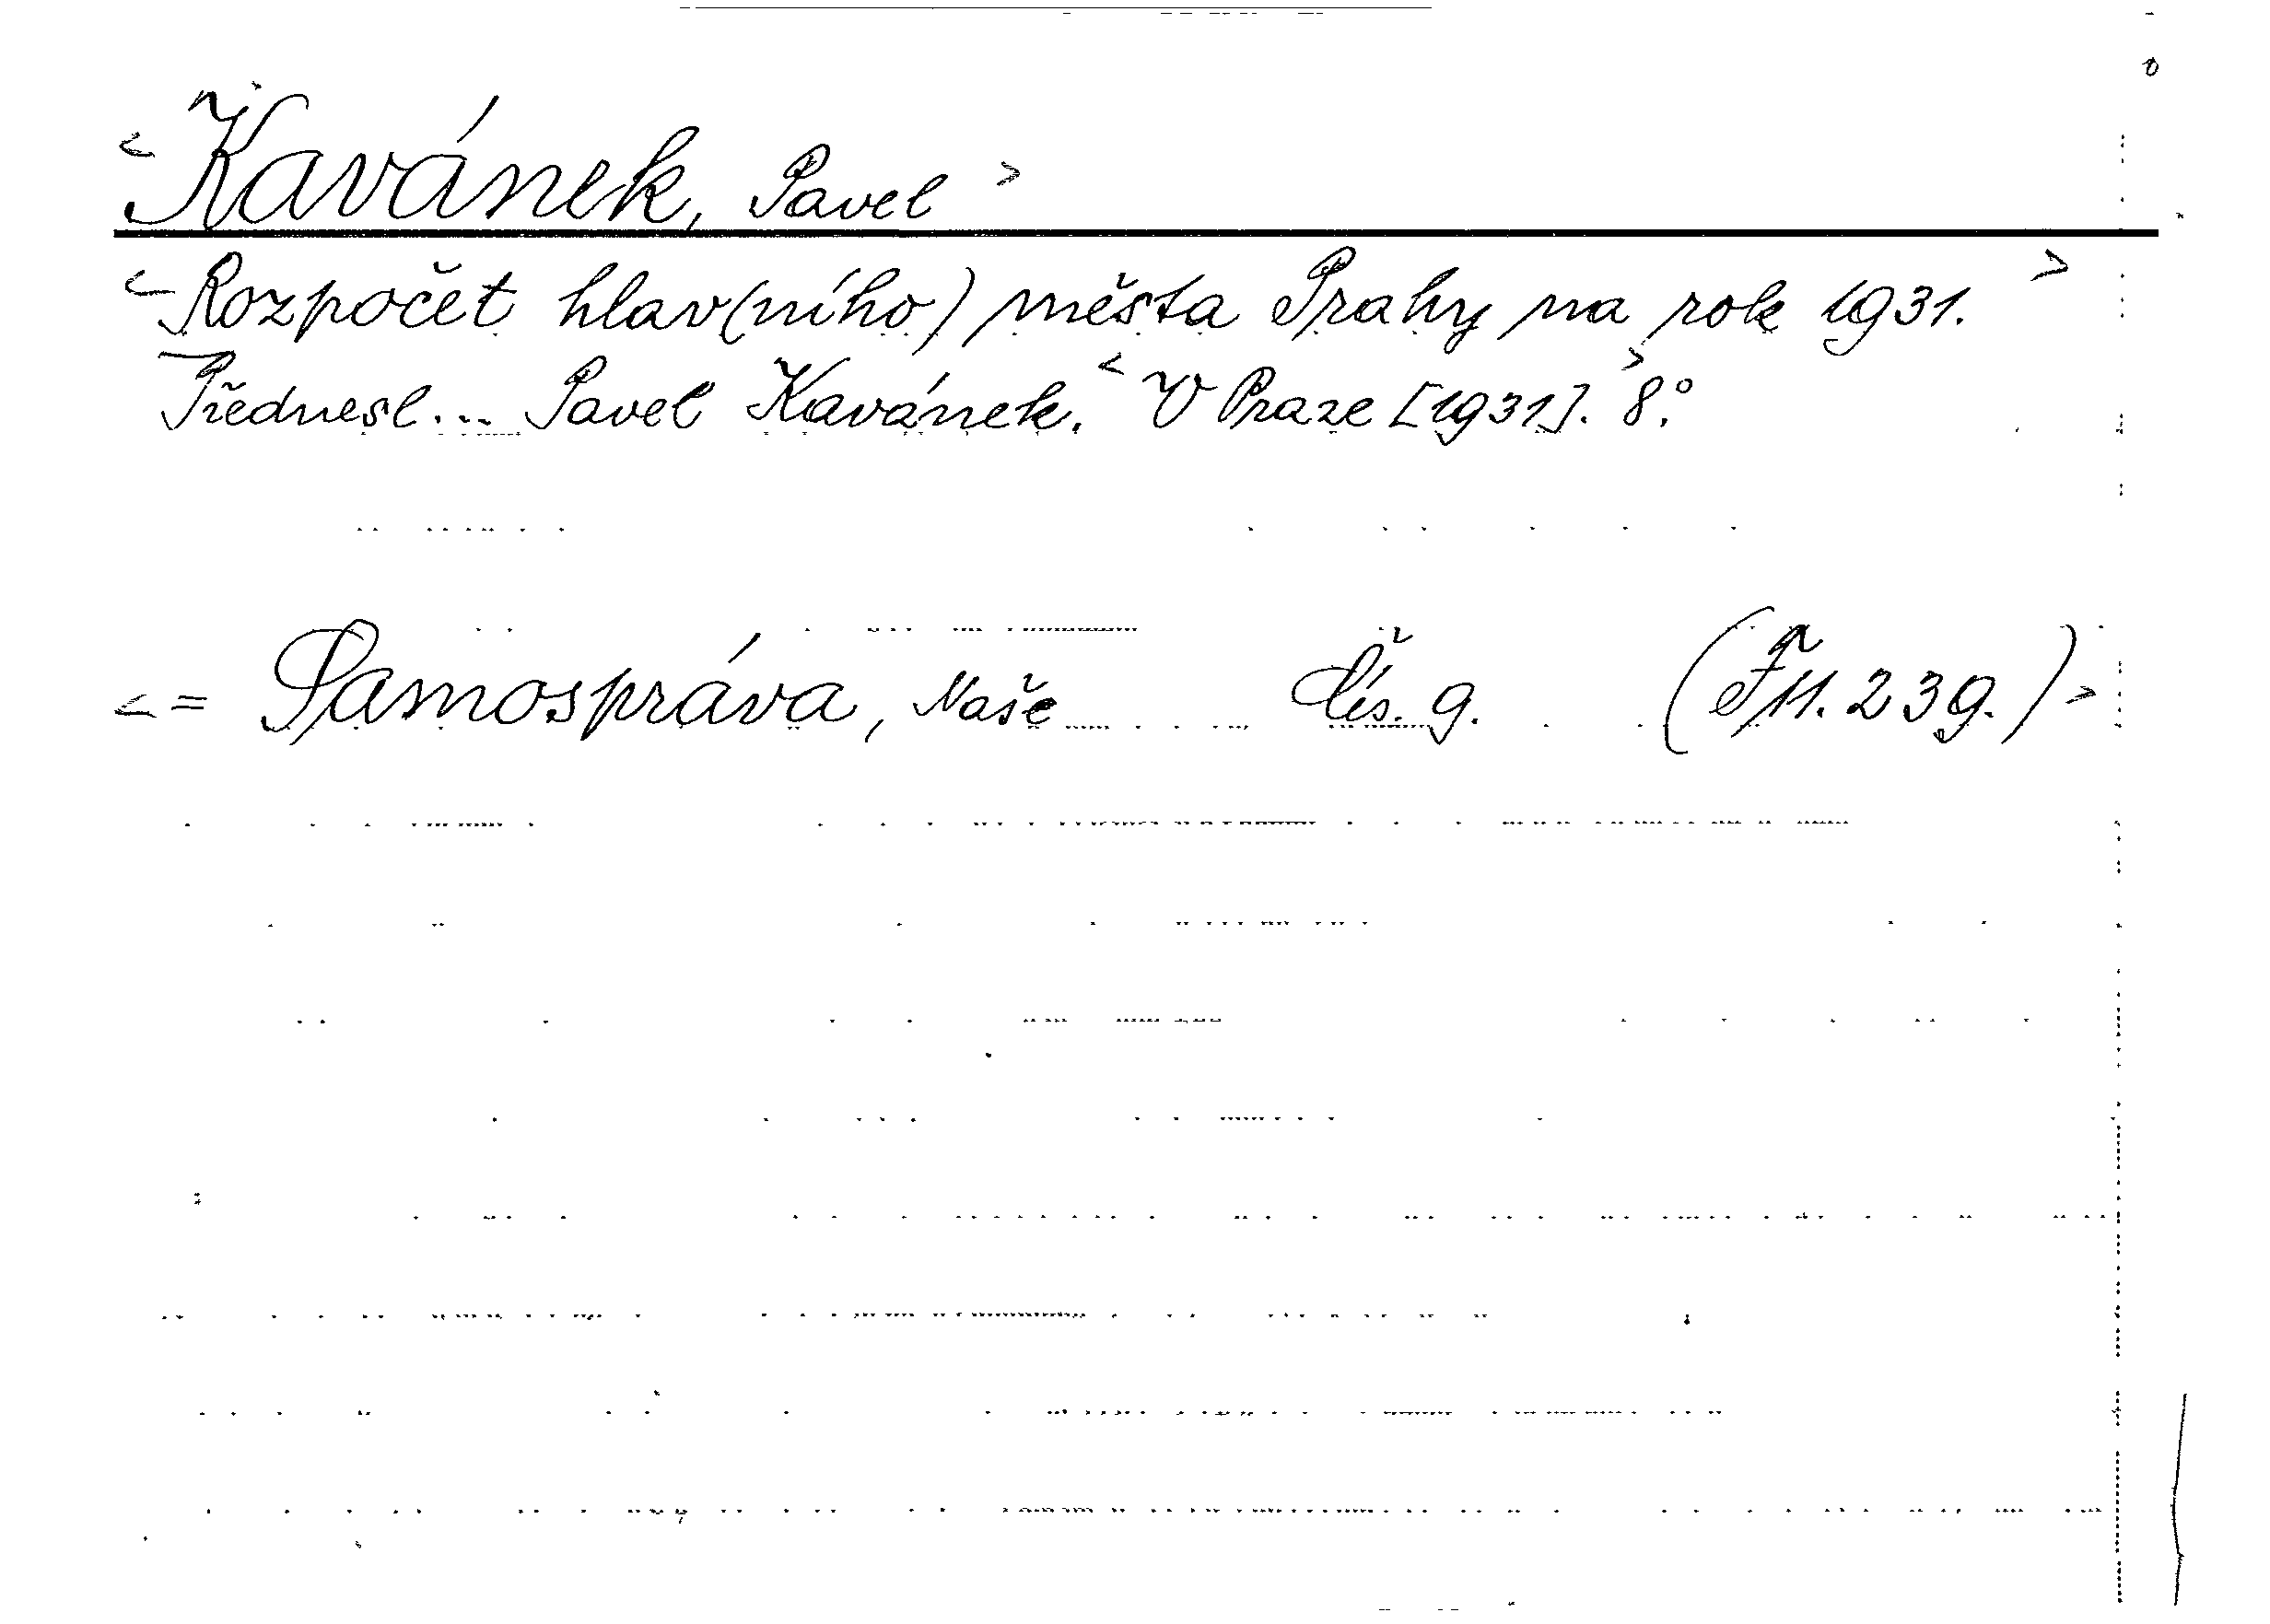 <Kavánek, Pavel>
<Rozpočet hlav(ního) města Prahy na rok 1931.>
Přednesl... Pavel Kavánek. <V Praze [1931].> 8.°
<= Samospráva, Naše Čís. 9. (F 11.239.)>